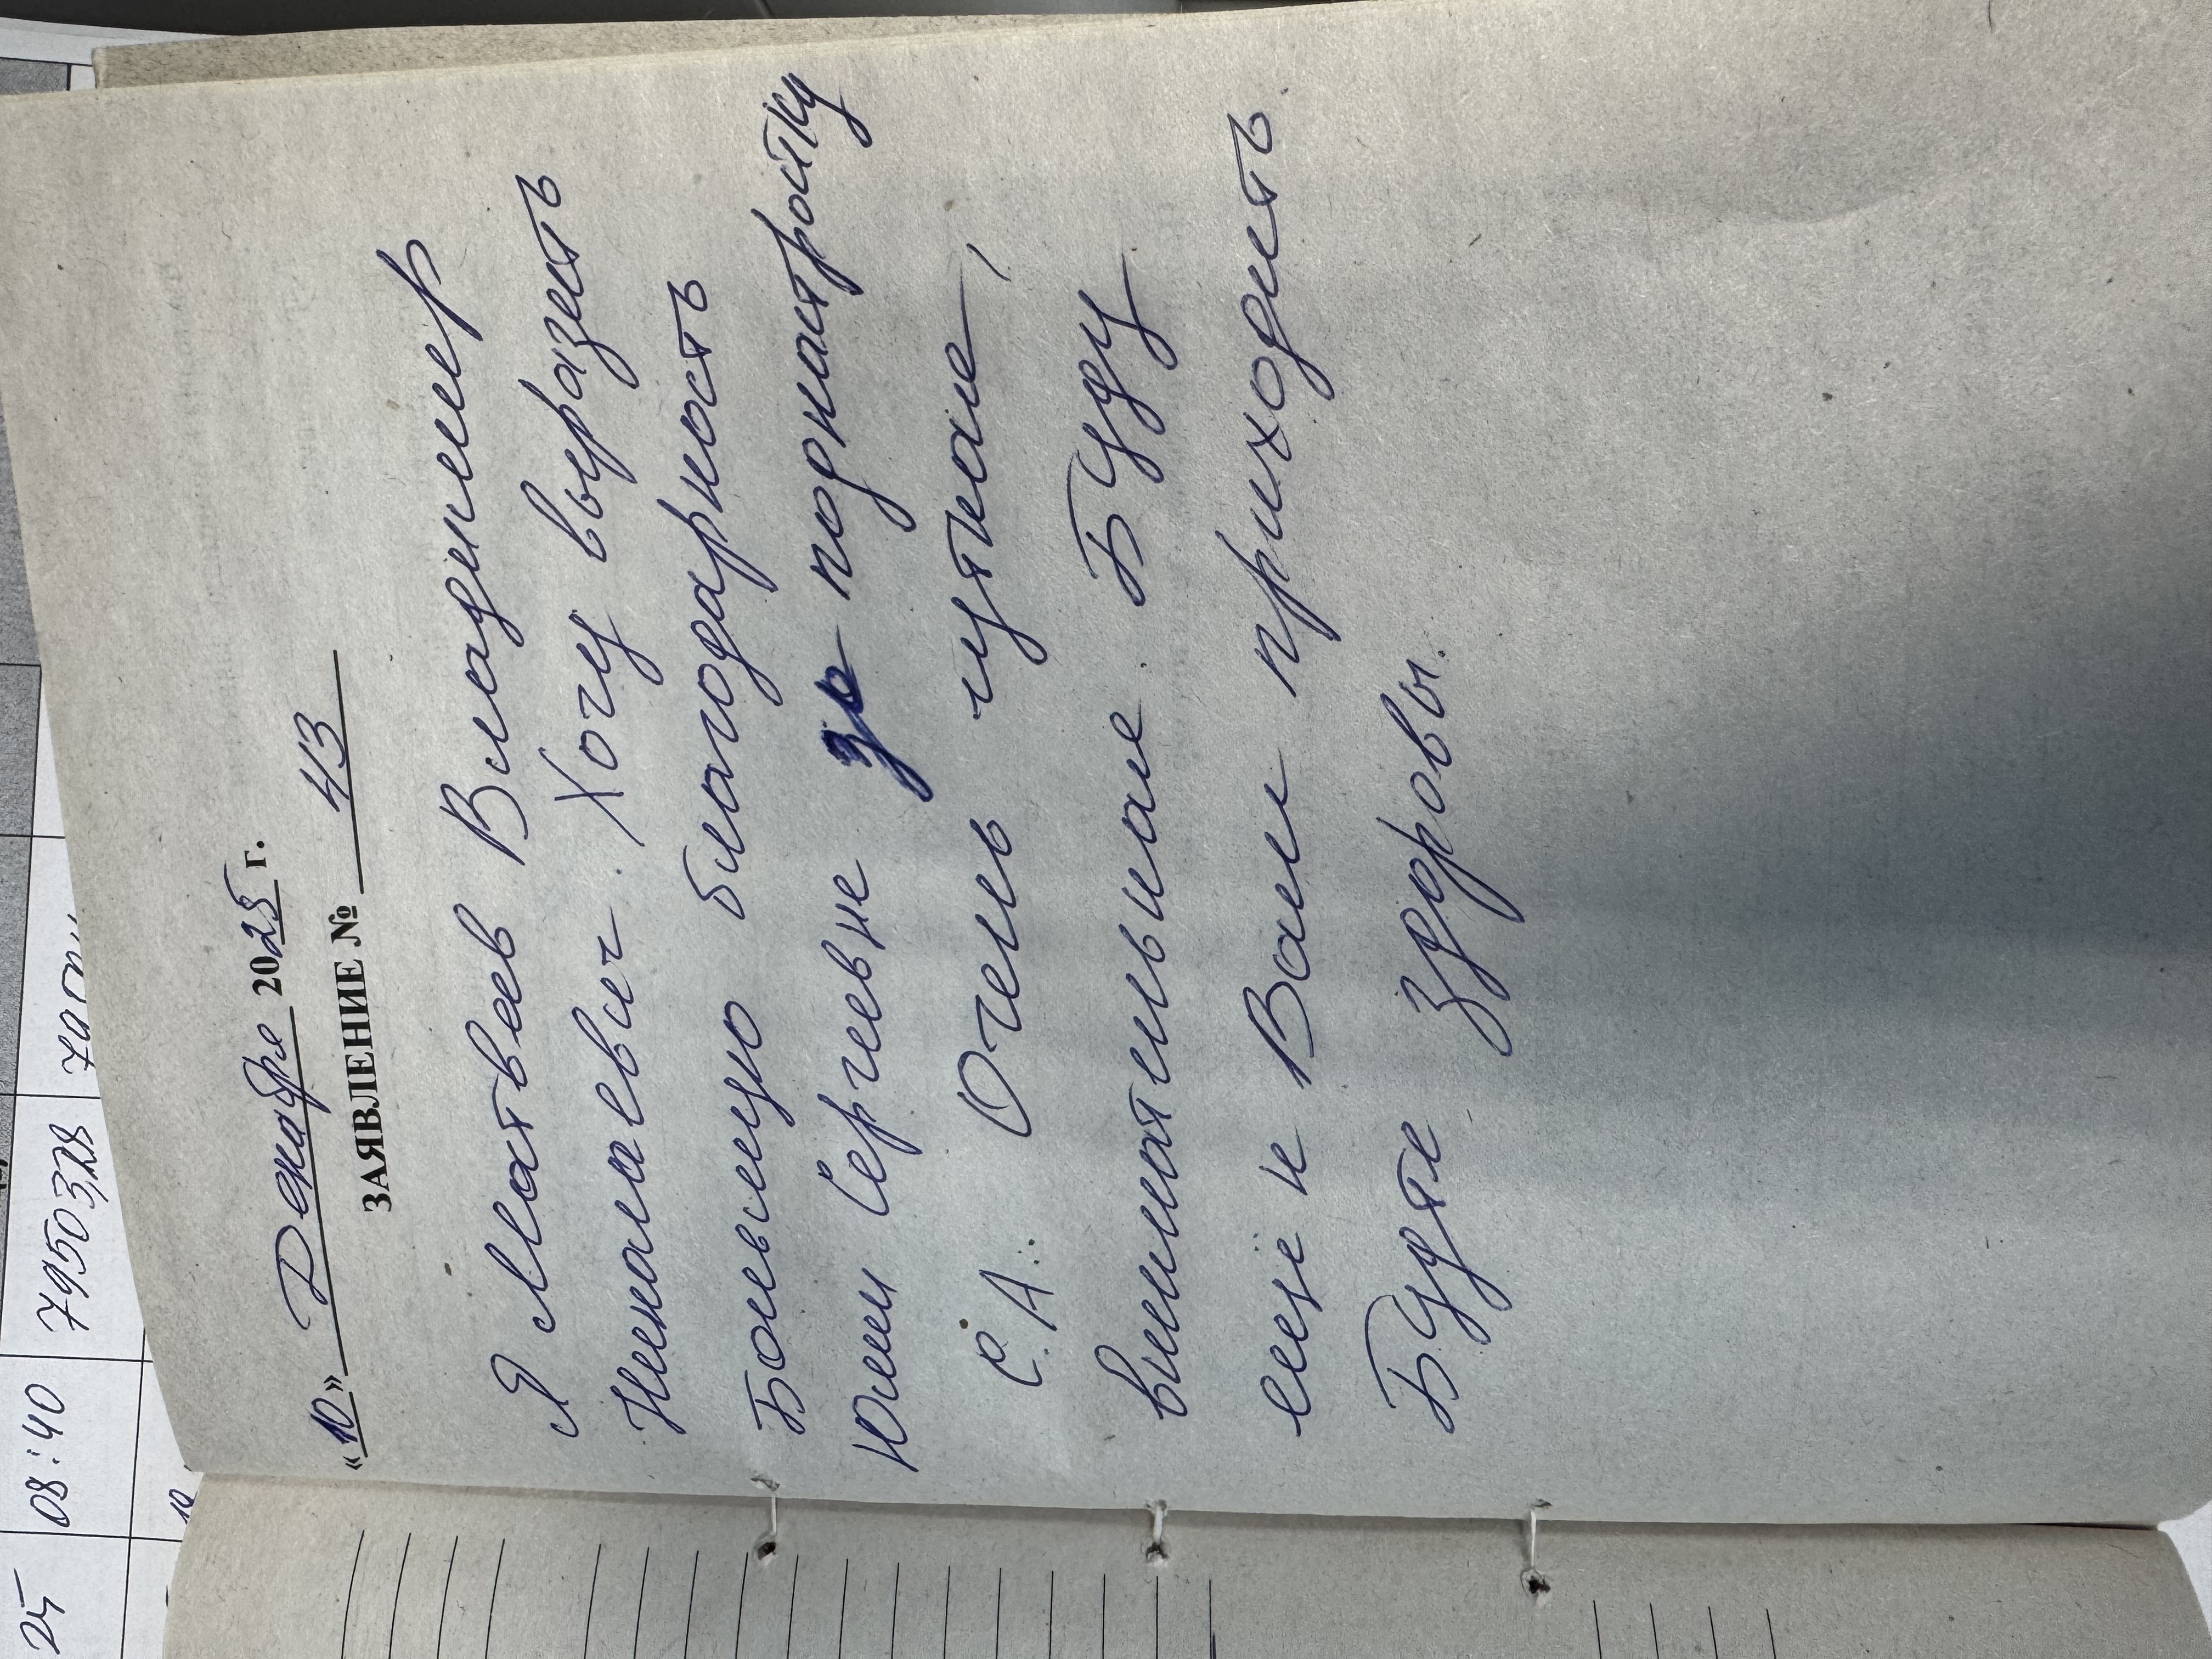 25 08:40 7950328
«10» Декабря 2025 г.
ЗАЯВЛЕНИЕ № 43
Я Матвеев Владимир
Николаевич. Хочу выразить
Большую благодарность
Юлии Сергеевне за поднастройку
С.А. Очень чуткая,
внимательная. Буду
еще к Вам приходить.
Будте здоровы.